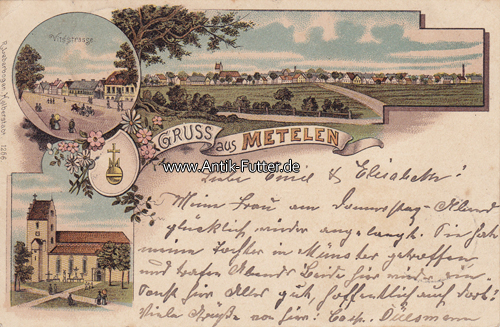 Vitsstrasse
GRUSS aus METELEN
www.Antik-Futter.de
1286
Liebe Emil & Elisabeth!
Meine Frau am Donnerstag Abend
glücklich wieder angelangt. Sie hat
meine Tochter in Münster getroffen
und trafen Abends Beide hier wieder ein.
Sonst hier Alles gut, hoffentlich auch dort!
Viele Grüße von hier: